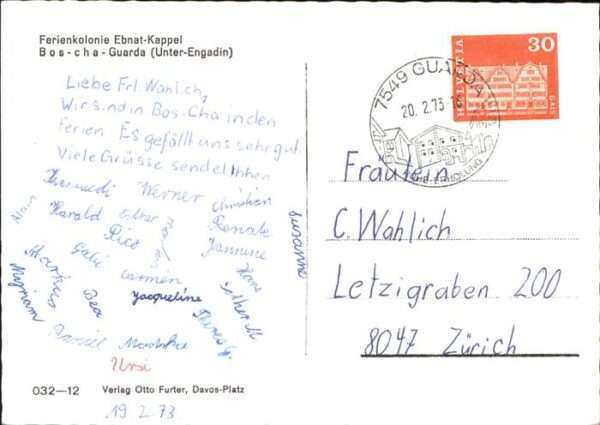 Ferienkolonie Ebnat-Kappel
Bos-cha-Guarda (Unter-Engadin)
Liebe Frl Wahlich,
Wir sind in Bos-Cha in den
Ferien. Es gefällt uns sehr gut.
Viele Grüsse sendet Ihnen
Werner Christian
Alain Harald Esther Renate
Rico Jannine
Susanne
Gabi Hans
Markus Carmen
Myriam Bea Jacqueline Esther M
Daniel
Ursi
032—12 Verlag Otto Furter, Davos-Platz
19.2.73
7549 GUARDA
20.2.73
HELVETIA 30
GAIS
Fräulein
C. Wahlich
Letzigraben 200
8047 Zürich